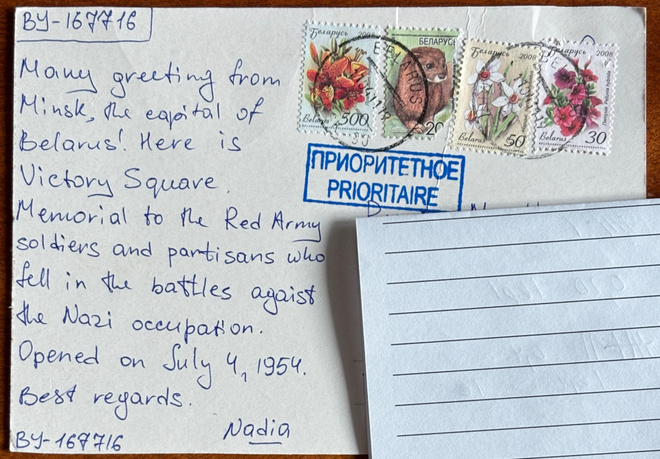 BY-167716
Many greeting from
Minsk, the capital of
Belarus! Here is
Victory Square.
Memorial to the Red Army
soldiers and partisans who
fell in the battles agaist
the Nazi occupation.
Opened on July 4, 1954.
Best regards.
Nadia
BY-167716
Беларусь 2008
Belarus 500
БЕЛАРУСЬ
20
Беларусь 2008
Belarus 50
2008
Belarus 30
BELARUS
ПРИОРИТЕТНОЕ
PRIORITAIRE